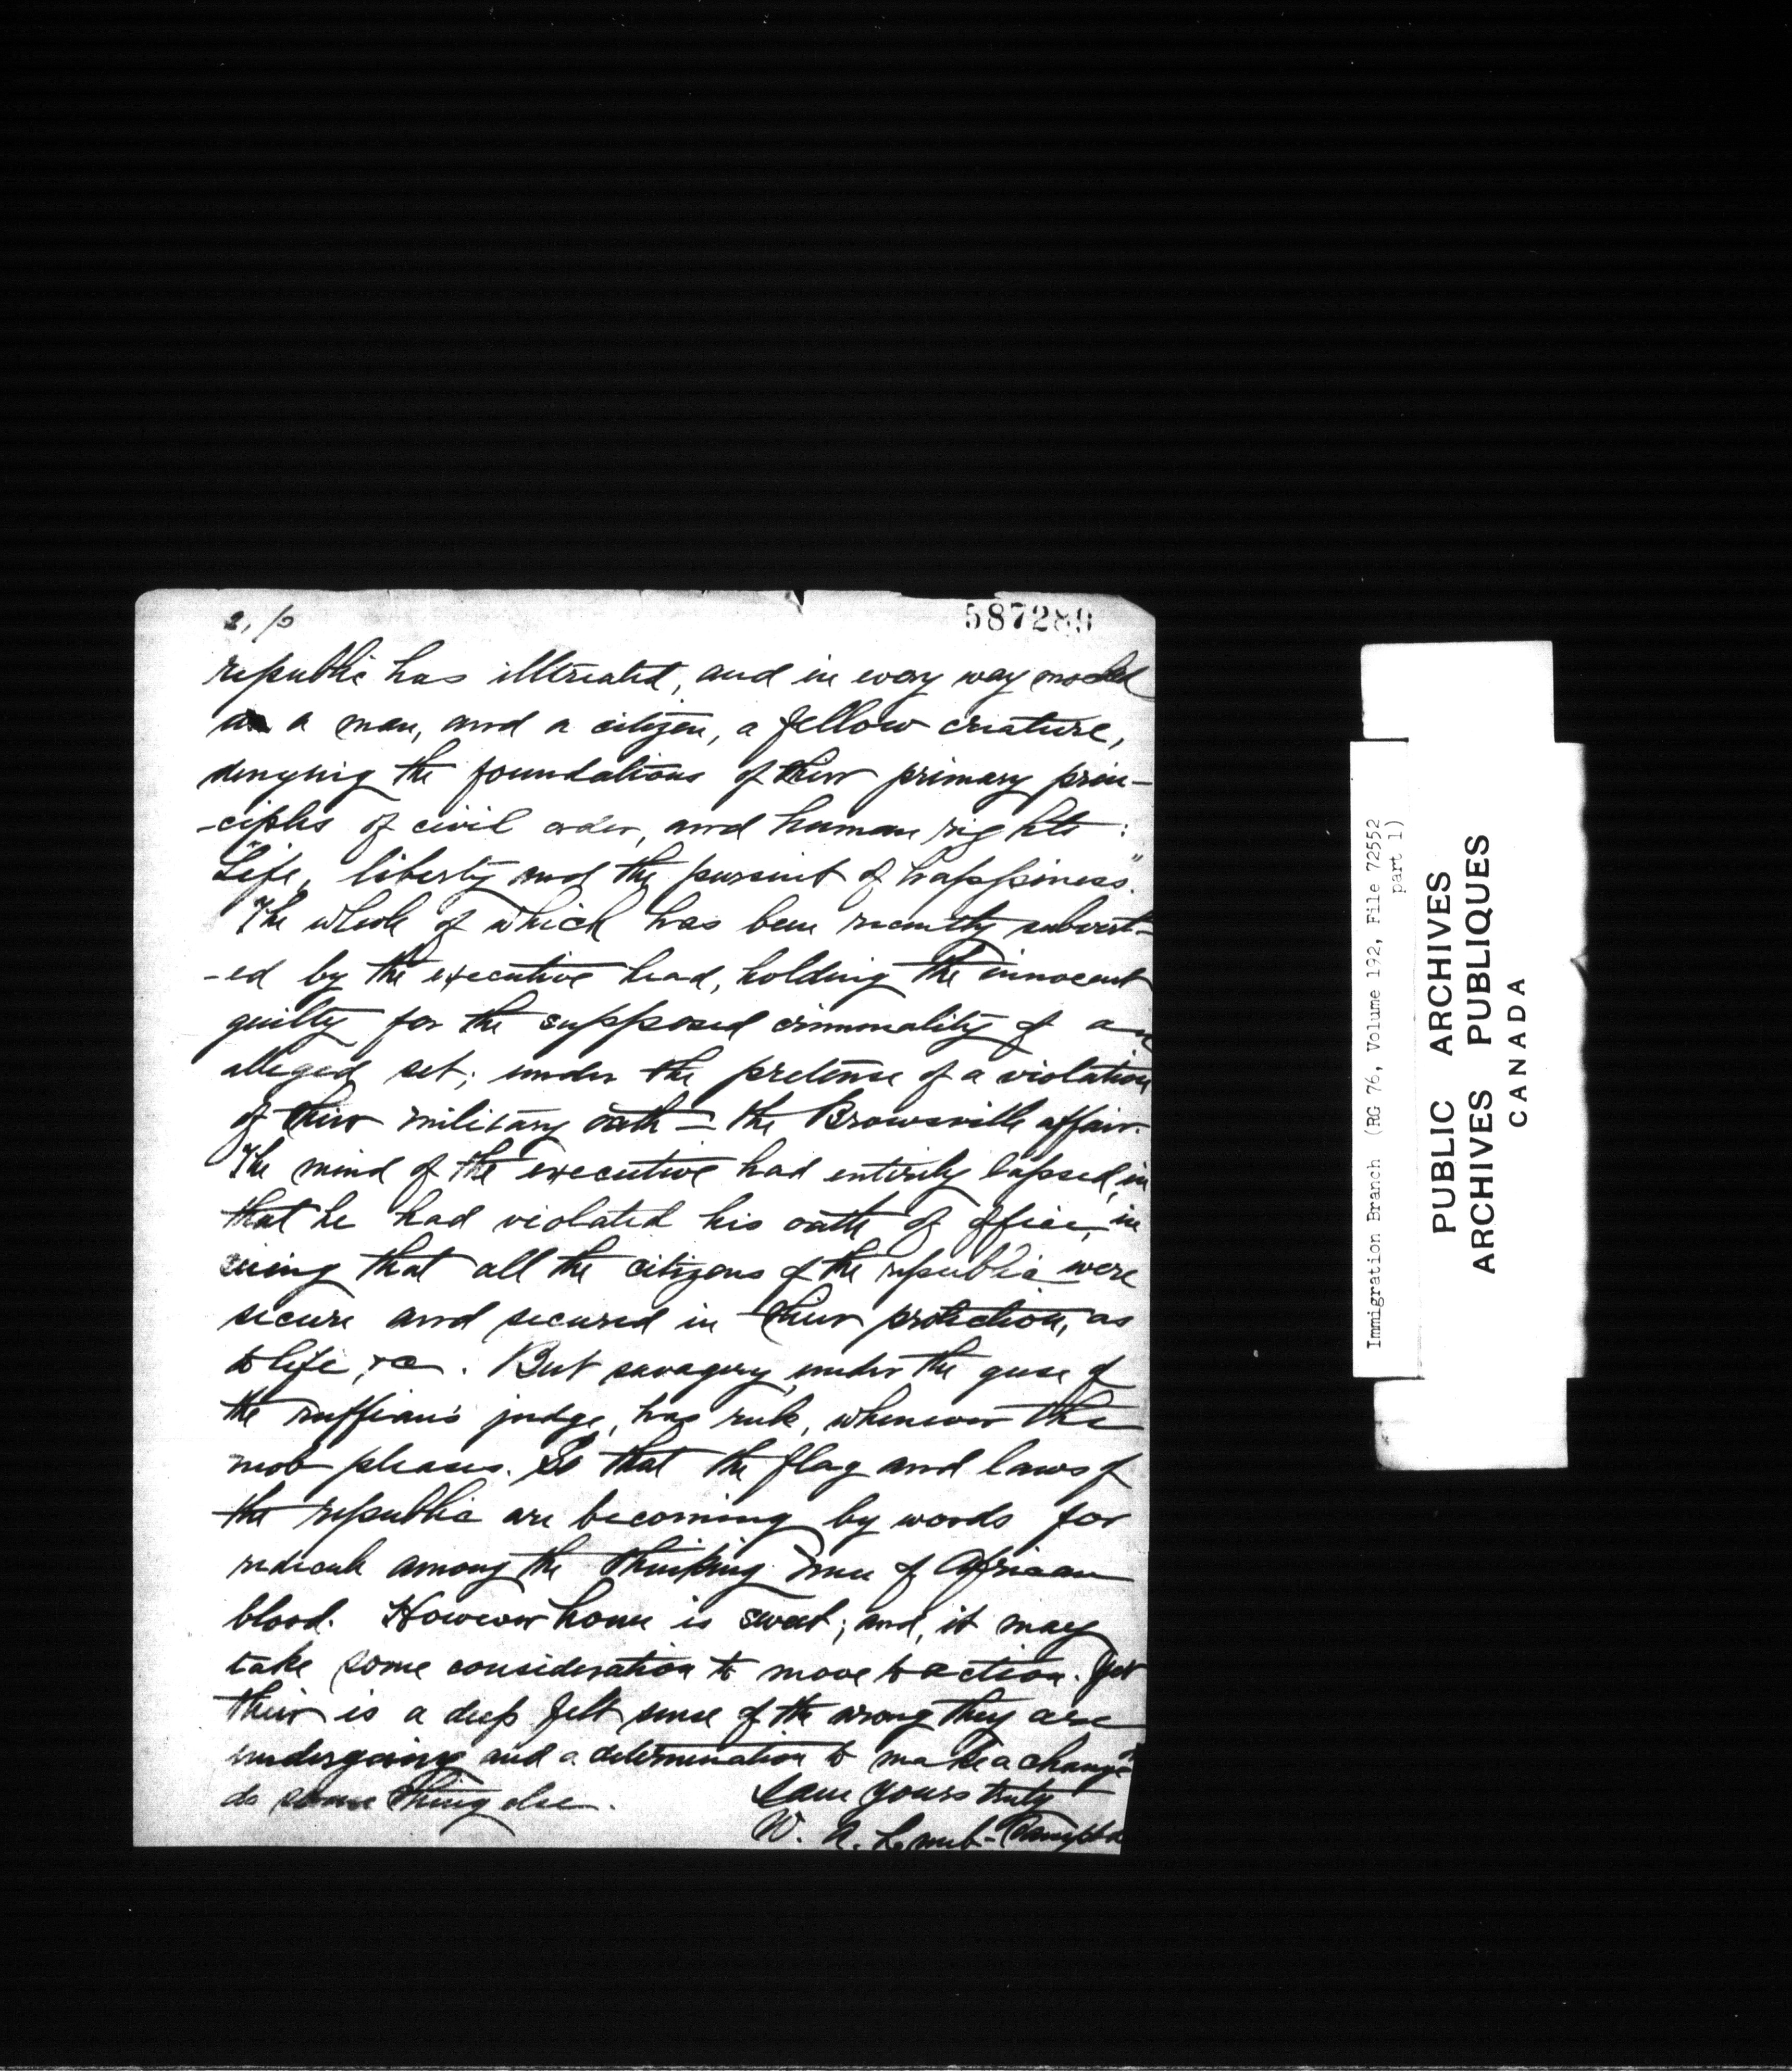 2, /0
587289
republic has illtreated, and in every way
a man, and a citizen, a fellow criature,
denyhig the foundations of their primary prin-
-ciples of civil order, and human rights:
"Life, liberty and the pursuit of happiness."
The whole of which has been recently subvert-
-ed by the executive head, holding the innocent
guilty for the supposed crimonality of an
alleged set; under the pretense of a violation
of their military oath - the Browsville affair.
The mind of the executive had entirely lapsed, in
that he had violated his oath of office, in
seeing that all the citizens of the republic were
secure and secured in their protection, as
to life, &c. But savagery, under the guse of
the ruffian's judge, has rule, whenever the
mob pleases. So that the flag and laws of
the republic are becoming by words for
redicule among the thinking men of African
blood. However home is sweet; and, it may
take some consideration to move to action. Yet
their is a deep felt sense of the wrong they are
undergoing and a determination to make a change or
do some thing else. I am yours truly
W. A. Lamb-
Immigration Branch (RG 76, Volume 192, File 72552
part 1)
PUBLIC ARCHIVES
ARCHIVES PUBLIQUES
CANADA